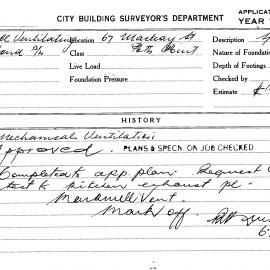 CITY BUILDING SURVEYOR'S DEPARTMENT
APPLICATI
YEAR
Ventilating Location 67 Macleay St
Class Potts Point
Live Load
Foundation Pressure
Nature of Foundation
Depth of Footings
Checked by
Estimate $
HISTORY
Mechanical Ventilation
Approved. PLANS & SPECN. ON JOB CHECKED
Completed to app. plan. Request
test to kitchen exhaust pl-
Markwell Vent.
Mark off.